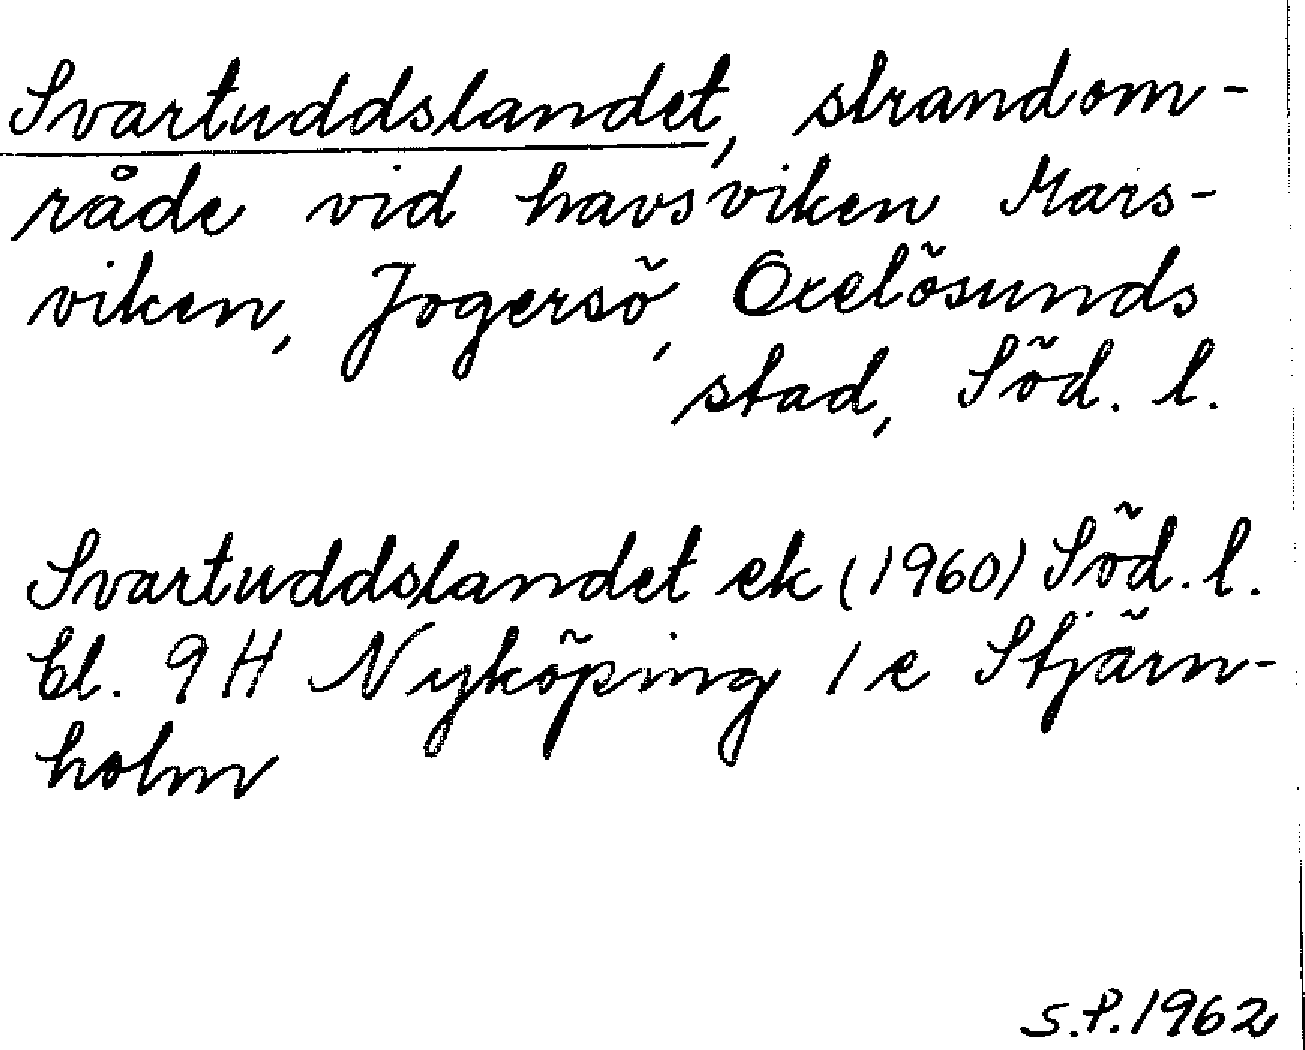 Svartuddslandet, strandom-
råde vid havsviken Mars-
viken, Jogersö, Oxelösunds
stad, Söd. l.
Svartuddslandet ek (1960) Söd. l.
bl. 9H Nyköping 1 e Stjärn-
holm
S.P. 1962